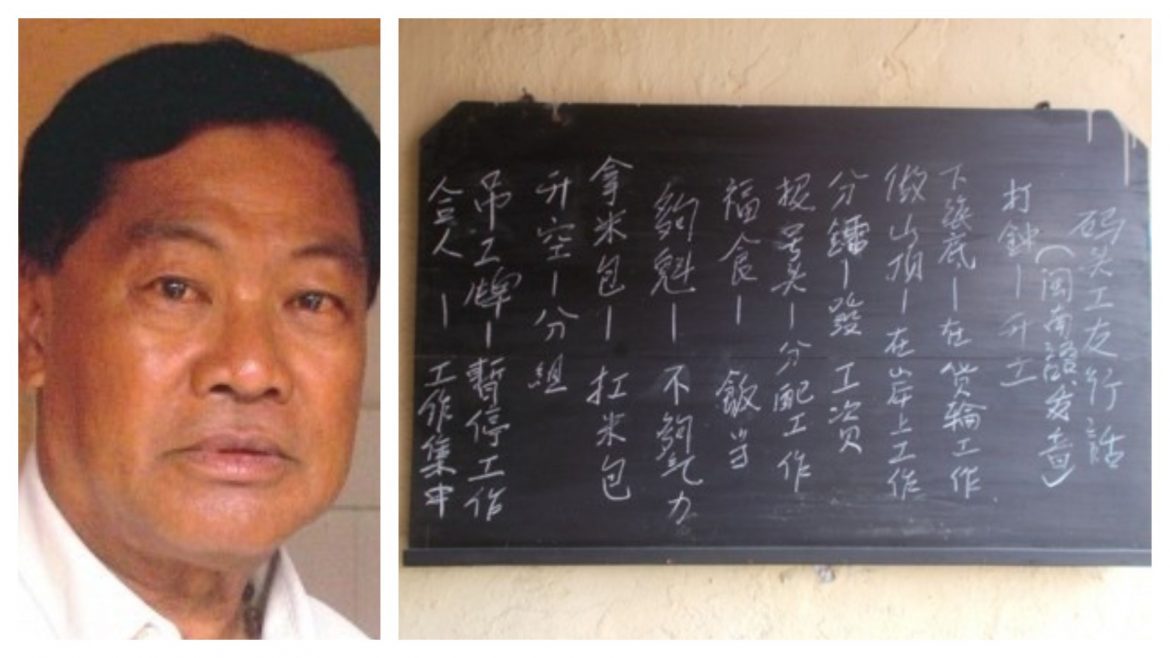 码头工友行話
（闽南語发音）
打鈡—开工
下海底—在货轮工作
做山顶—在岸上工作
分鐳—發工资
号头—分配工作
福食—飯当
夠魁—不夠气力
拿米包—扛米包
开空—分組
吊工牌—暫停工作
人—工作集中